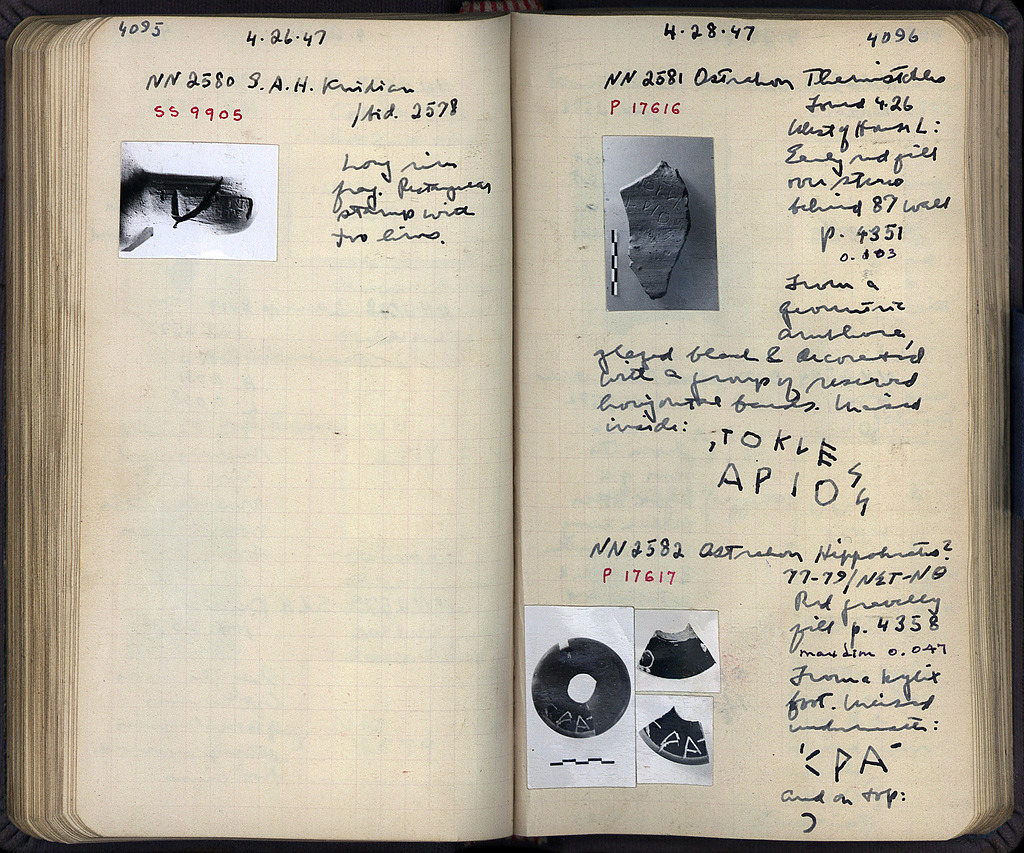 4095
4·26·47
NN 2580 S.A.H. Knidian
SS 9905
/bid. 2578
Long rim
frag. Rectangular
stamp with
two lines.
4·28·47
4096
NN 2581 Ostrakon Themistokles
P 17616
Found 4·26
West of House L:
Early red fill
over stereo
behind 87 wall
p. 4351
0.103
From a
geometric
amphora,
glazed black & decorated
with a group of reserved
horizontal bands. Incised
inside:
TOKLE
APIO
NN 2582 Ostrakon Hippokrates?
P 17617
77-79/
Red gravelly
fill p. 4358
max dim 0.047
From a kylix
foot. Incised
underneath:
PA
and on top: